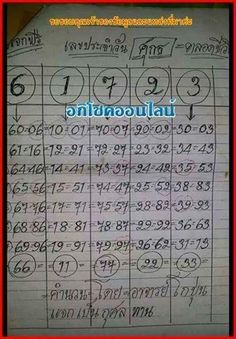 ขอขอบคุณเจ้าของข้อมูลและแหล่งที่มาค่ะ
แจกฟรี เลขประจำวัน ศุกร์ =ตลอดชีวิต
6 1 7 2 3
อภิโชคออนไลน์
60-06=10=01=70-07=20-02=30-03
61-16=12=21=72-27=23-32=34-43
64-46=14=41=73-37=24-42=35-53
65-56=15=51=74-47=25-52=38-83
67-76=17=71=75-57=28-82=39-93
68-86=18=81=78-87=29-92=36-63
69-96=19=91=79-97=26-62=31-13
66 = 11 = 77 = 22 = 33
คำนวน=โดย=อาจารย์ โกปุ่น
แจกเป็นกุศลทาน